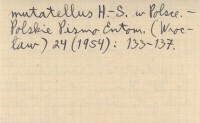 mutatellus H.-S. w Polsce. –
Polskie Pismo Entom. (Wroc-
ław) 24 (1954): 133-137.